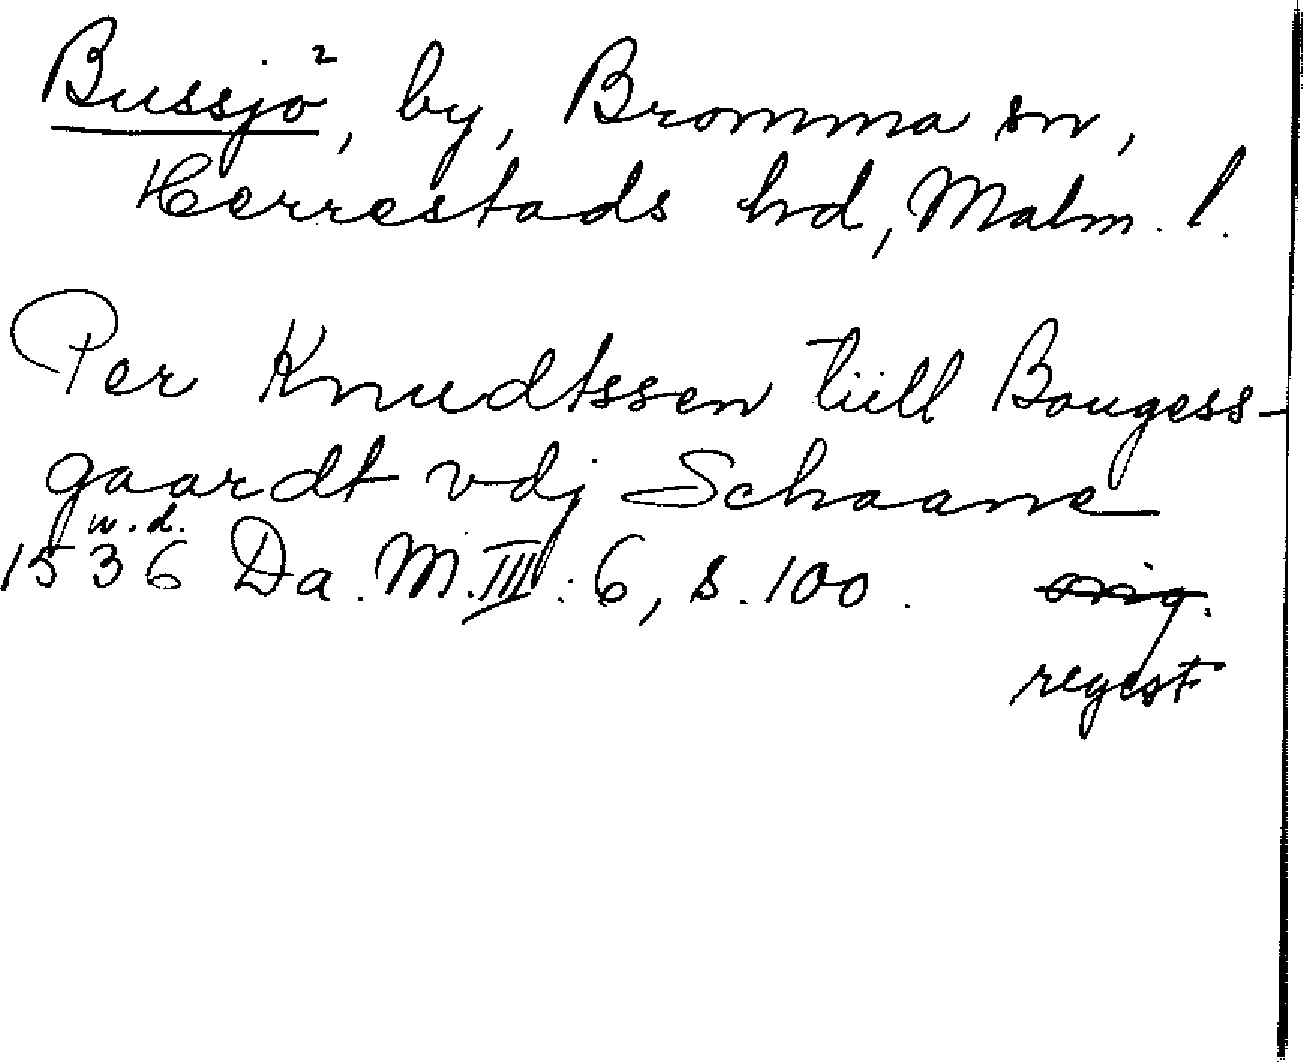 Bussjö², by, Bromma sn,
Herrestads hd, Malm. l.
Per Knudtssen tiill Bougess-
gaardt vdj Schaane
u. d.
1536 Da. M. III: 6, s. 100. orig.
regest